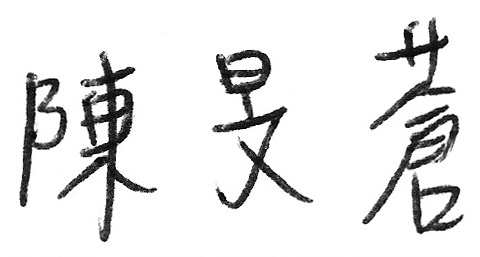 陳旻蒼